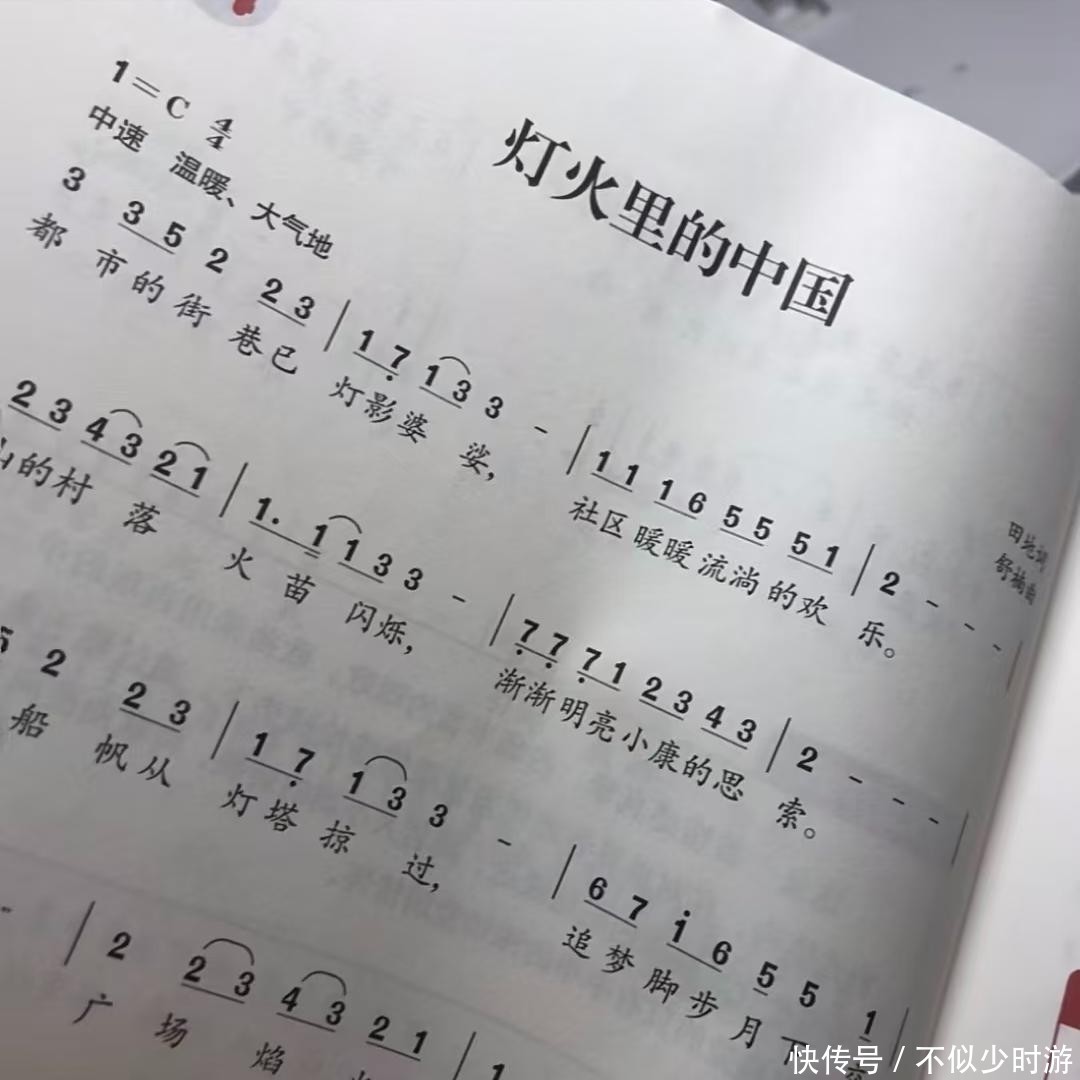 灯火里的中国
1=C 4/4
中速 温暖、大气地
田地词
舒楠曲
3 3 5 2 2 3 | 1 7 1 3 3 - | 1 1 1 6 5 5 5 1 | 2 - - - |
都 市的街 巷已 灯影婆 娑， 社区暖暖流淌的欢 乐。
2 3 4 3 2 1 | 1. 1 1 3 3 - | 7 7 7 1 2 3 4 3 | 2 - - - |
山的村 落 火 苗 闪烁， 渐渐明亮小康的思 索。
5 2 2 3 | 1 7 1 3 3 - | 6 7 1 6 5 5 1 |
船 帆从 灯塔掠 过， 追梦脚步月下
| 2 2 3 4 3 2 1 | 1
广 场 焰
快传号 / 不似少时游